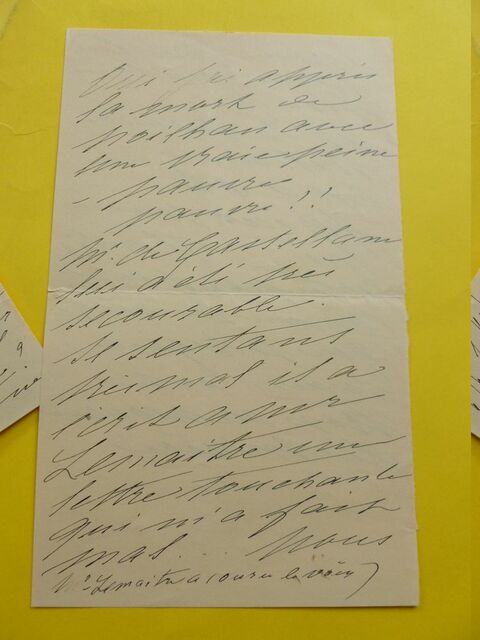 Oui j'ai appris
la mort de
poilhan avec
une vraie peine
- pauvre
pauvre !!
Mr de Castellane
lui a été très
secourable.
Se sentant
très mal il a
écrit a Mr
Lemaitre une
lettre touchante
qui m'a fait
mal... nous
Mr Lemaitre a couru le voir)